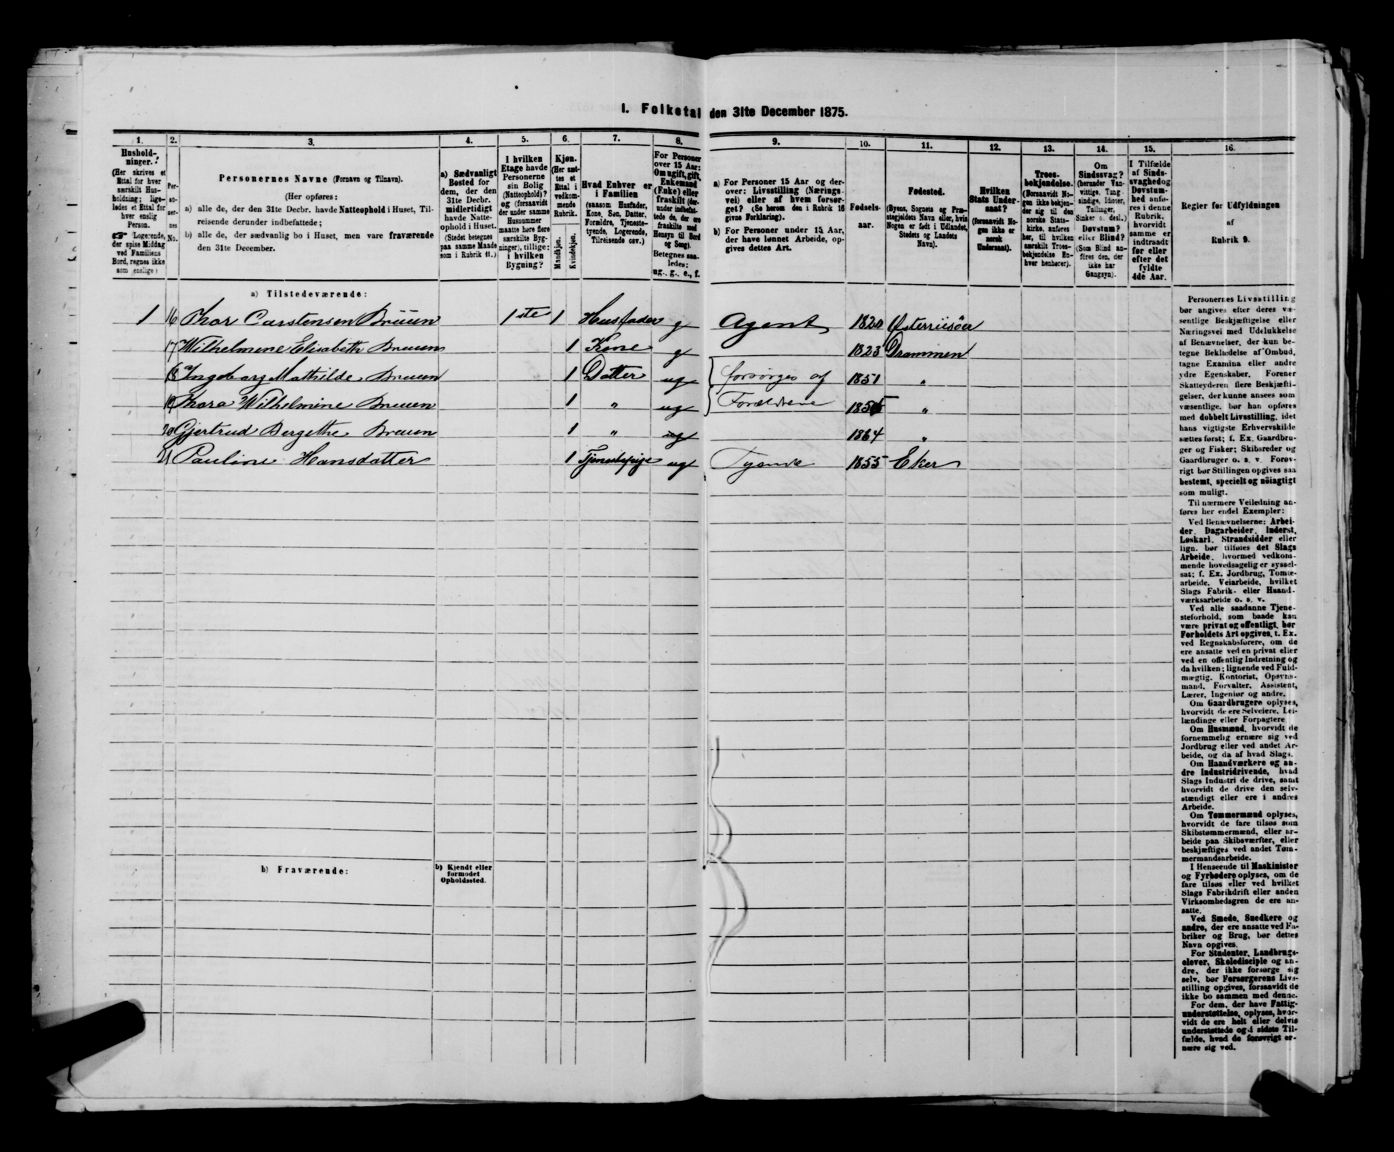 I. Folketal den 31te December 1875.
1. 2. 3. 4. 5. 6. 7. 8. 9. 10. 11. 12. 13. 14. 15. 16.
Husholdninger.
(Her skrives et Ettal for hver særskilt Husholdning; ligeledes et Ettal for hver enslig Person.
☞ Logerende, der spise Middag ved Familiens Bord, regnes ikke som enslige)
Personernes No.
Personernes Navne (Fornavn og Tilnavn).
(Her opføres:
a) alle de, der den 31te Decbr. havde Natteophold i Huset, Tilreisende derunder indbefattede;
b) alle de, der sædvanlig bo i Huset, men vare fraværende den 31te December.
a) Sædvanligt Bosted for dem, der den 31te Decbr. midlertidigt havde Natteophold i Huset.
(Stedet betegnes paa samme Maade som i Rubrik 11.)
I hvilken Etage havde Personerne sin Bolig (Natteophold)? og (forsaavidt der under samme Husnummer maatte høre flere særskilte Bygninger), tillige: i hvilken Bygning?
Kjøn.
(Her sættes et Ettal i vedkommende Rubrik.
Mandkjøn.
Kvindekjøn.
Hvad Enhver er i Familien
(saasom Husfader, Kone, Søn, Datter, Forældre, Tjenestetyende, Logerende, Tilreisende osv.)
For Personer over 15 Aar: Om ugift, gift, Enkemand (Enke) eller fraskilt
Betegnes saaledes:
ug., g., e., f.
a) For Personer 15 Aar og derover: Livsstilling (Næringsvei) eller af hvem forsørget? (Se herom den i Rubrik 16 givne Forklaring).
b) For Personer under 15 Aar, der have lønnet Arbeide, opgives dettes Art.
Fødselsaar.
Fødested.
(Byens, Sognets og Præstegjeldets Navn eller, hvis Nogen er født i Udlandet, Stedets og Landets Navn).
Hvilken Stats Undersaat?
(forsaavidt Nogen ikke er norsk Undersaat).
Troesbekjendelse.
(forsaavidt Nogen ikke bekjender sig til den norske Statskirke, anføres her, til hvilken særskilt Troesbekjendelse Enhver henhører).
Om Sindssvag?
(herunder Vanvittige, Tungsindige, Idioter, Tullinger, Sinker o. desl.)
Døvstum? eller Blind?
(Som Blind anføres den, der ikke har Gangsyn).
I Tilfælde af Sindssvaghed og Døvstumhed anføres i denne Rubrik, hvorvidt samme er indtraadt før eller efter det fyldte 4de Aar.
Regler for Udfyldningen
af
Rubrik 9.
a) Tilstedeværende:
1 16 Thor Carstensen Brüün 1ste 1 Husfader g Agent 1820 Østerriisöer
17 Wilhelmine Elisabeth Bruun 1 Kone g 1823 Drammen
18 Ingeborg Mathilde Bruun 1 Datter ug forsørges af 1851 "
19 Thora Wilhelmine Bruun 1 " ug Forældrene 1855 "
20 Gjertrud Bergethe Bruun 1 " ug 1864 "
21 Pauline Hansdatter 1 Tjenestepige ug Tyende 1855 Eker
b) Fraværende:
b) Kjendt eller formodet Opholdssted.
Personernes Livsstilling
bør angives efter deres væ-
sentlige Beskjæftigelse eller
Næringsvei med Udelukkelse
af Benævnelser, der kun be-
tegne Beklædelse af Ombud,
tagne Examina eller andre
ydre Egenskaber. Forener
Skatteyderen flere Beskjæfti-
gelser, der kunne ansees som
væsentlige, bør han opføres
med dobbelt Livsstilling, idet
hans vigtigste Erhvervskilde
sættes først; f. Ex. Gaardbru-
ger og Fisker; Skibsreder og
Gaardbruger o. s. v. Forøv-
rigt bør Stillingen opgives saa
bestemt, specielt og nöiagtigt
som muligt.
Til nærmere Veiledning an-
føres her endel Exempler:
Ved Benævnelserne: Arbei-
der, Dagarbeider, Inderst,
Løskarl, Strandsidder eller
lign. bør tilføies det Slags
Arbeide, hvormed vedkom-
mende hovedsagelig er syssel-
sat; f. Ex. Jordbrug, Tomte-
arbeide, Veiarbeide, hvilket
Slags Fabrik- eller Haand-
værksarbeide o. s. v.
Ved alle saadanne Tjene-
steforhold, som baade kan
være privat og offentligt, bør
Forholdets Art opgives, t. Ex.
ved Regnskabsførere, om de
ere ansatte ved en privat eller
ved en offentlig Indretning og
da hvilken; lignende ved Fuld-
mægtig, Kontorist, Opsyns-
mand, Forvalter, Assistent,
Lærer, Ingeniør og andre.
Om Gaardbrugere oplyses,
hvorvidt de ere Selveiere, Lei-
lændinge eller Forpagtere
Om Husmænd, hvorvidt de
fornemmelig ernære sig ved
Jordbrug eller ved andet Ar-
beide, og da af hvad Slags.
Om Haandværkere og an-
dre Industridrivende, hvad
Slags Industri de drive, samt
hvorvidt de drive den selv-
stændigt eller ere i andres
Arbeide.
Om Tømmermænd oplyses,
hvorvidt de fare tilsøs som
Skibstømmermænd, eller ar-
beide paa Skibsværfter, eller
beskjæftiges ved andet Tøm-
mermandsarbeide.
I Henseende til Maskinister
og Fyrbødere oplyses, om de
fare tilsøs eller ved hvilket
Slags Fabrikdrift eller anden
Virksomhedsgren de ere an-
satte.
Ved Smede, Snedkere og
andre, der ere ansatte ved Fa-
briker og Brug, bør dettes
Navn opgives.
For Studenter, Landbrugs-
elever, Skoledisciple og an-
dre, der ikke forsørge sig
selv, bør Forsørgerens Livs-
stilling opgives, forsaavidt de
ikke bo sammen med denne.
For dem, der have Fattig-
understøttelse, oplyses, hvor-
vidt de ere helt eller delvis
understøttede og i sidste Til-
fælde, hvad de forøvrigt er-
nære sig ved.